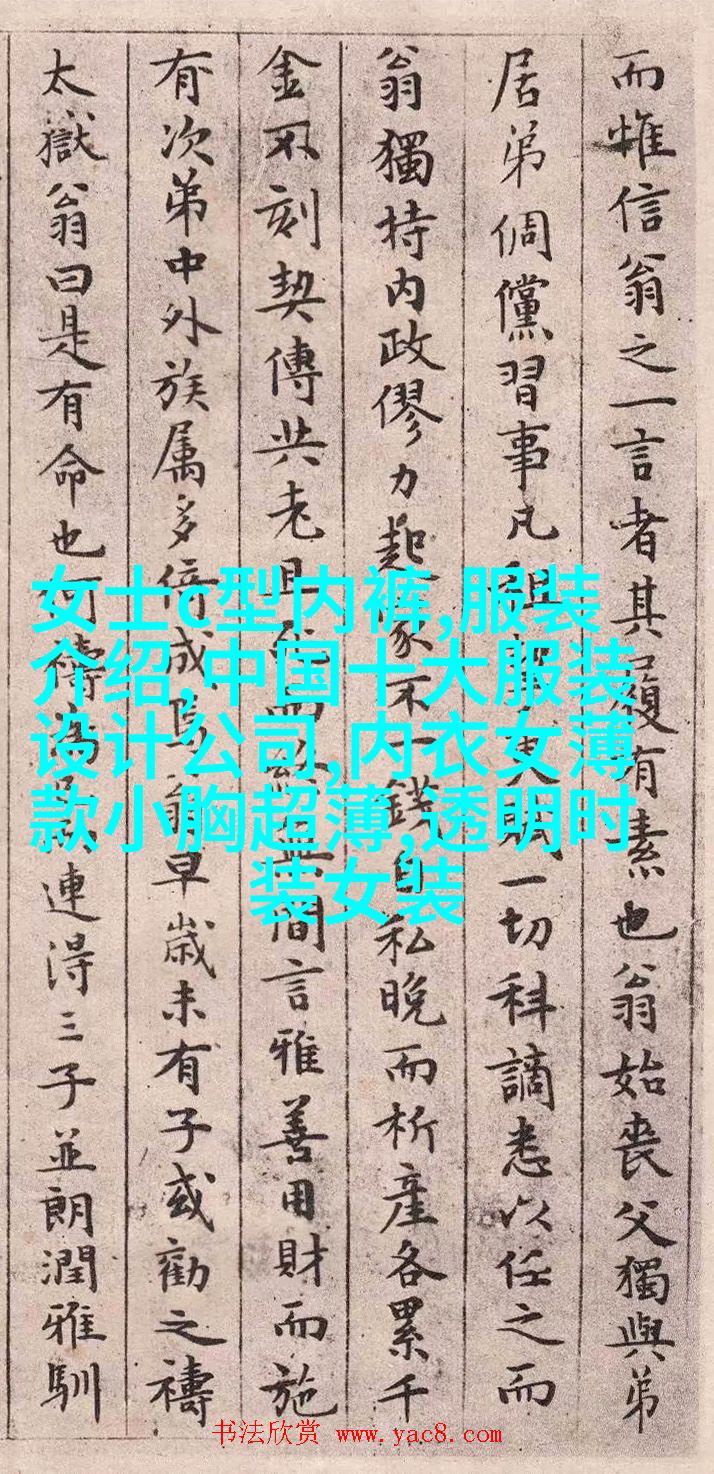 而惟信翁之一言者其履有素也翁始喪父獨與弟
居弟倜儻習事凡一切科謫悉以任之而
翁獨持内政僇力起家不一錢自私晚而析產各累千
金不刻契傳共老且而無間言雅善用財而施
有次弟中外族属多倚成焉翁早歲未有子或勸之禱
太嶽翁曰是有命也何禱為連得三子並朗潤雅馴
女士c型内裤,服装
介绍,中国十大服装
设计公司,内衣女薄
款小胸超薄,透明时
装女装
书法欣赏 www.yac8.com